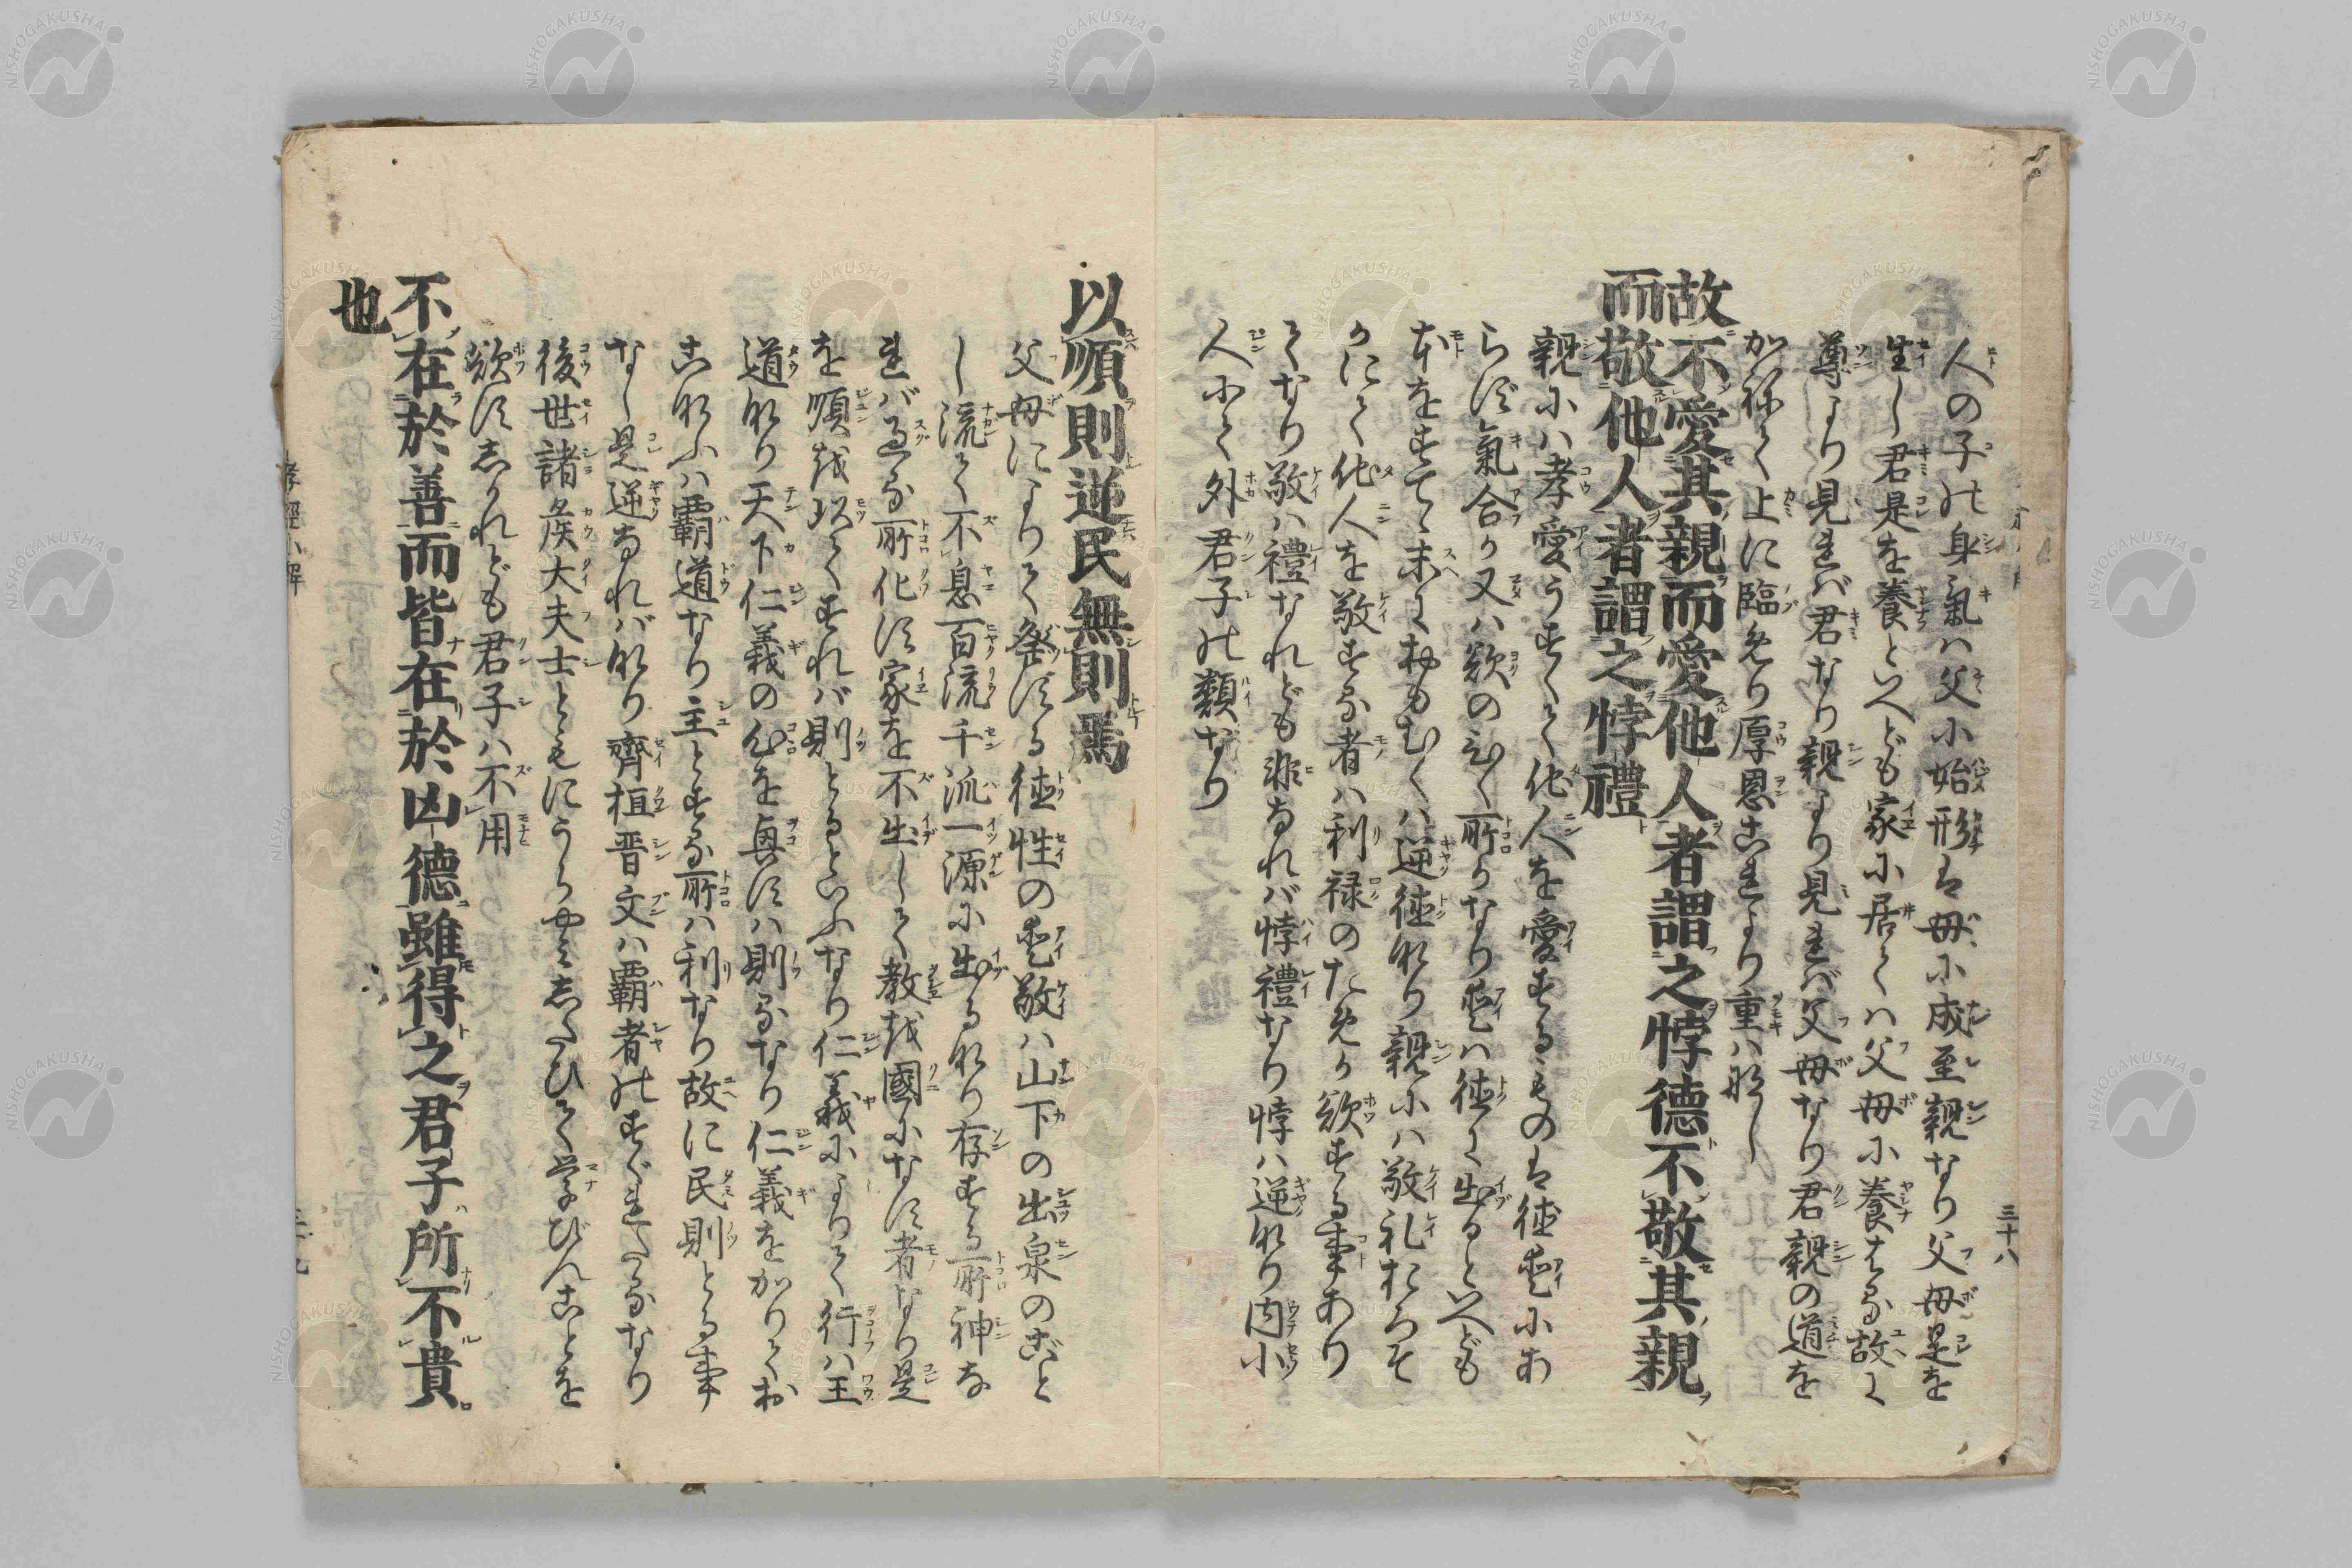 人の子の身氣ハ父に始形ハ母に成至親なり父母是を
生し君是を養といへども家に居てハ父母に養はる故に
尊より見れバ君なり親より見れバ父母なり君親の道を
かねて上に臨めり厚恩これより重ハなし
故不愛其親而愛他人者謂之悖德不敬其親
而敬他人者謂之悖禮
親にハ孝愛うすくて他人を愛するものハ徳愛にあ
らず氣合か又ハ欲のひく所かなり愛ハ徳に出るといへども
本をすてゝ末におもむくハ逆徳なり親にハ敬礼おろそ
かにて他人を敬する者ハ利禄のためか欲する事あり
てなり敬ハ禮なれども非なれバ悖禮なり悖ハ逆なり内小
人にて外君子の類なり
以順則逆民無則焉
父母によりて發する徳性の愛敬ハ山下の出泉のごと
し流て不息百流千派一源に出るなり存する所神な
れバ過る所化す家を不出して教を國になす者なり是
を順を以てすれバ則とるといふなり仁義によりて行ハ王
道なり天下仁義の心を興すハ則るなり仁義をかりてお
こなふハ覇道なり主とする所ハ利なり故に民則とる事
なし是逆なれバなり齊桓晋文ハ覇者のすぐれたるなり
後世諸侯大夫士ともにうらやみしたひて学びんことを
欲すしかれども君子ハ不用
不在於善而皆在於凶德雖得之君子所不貴
也
三十八